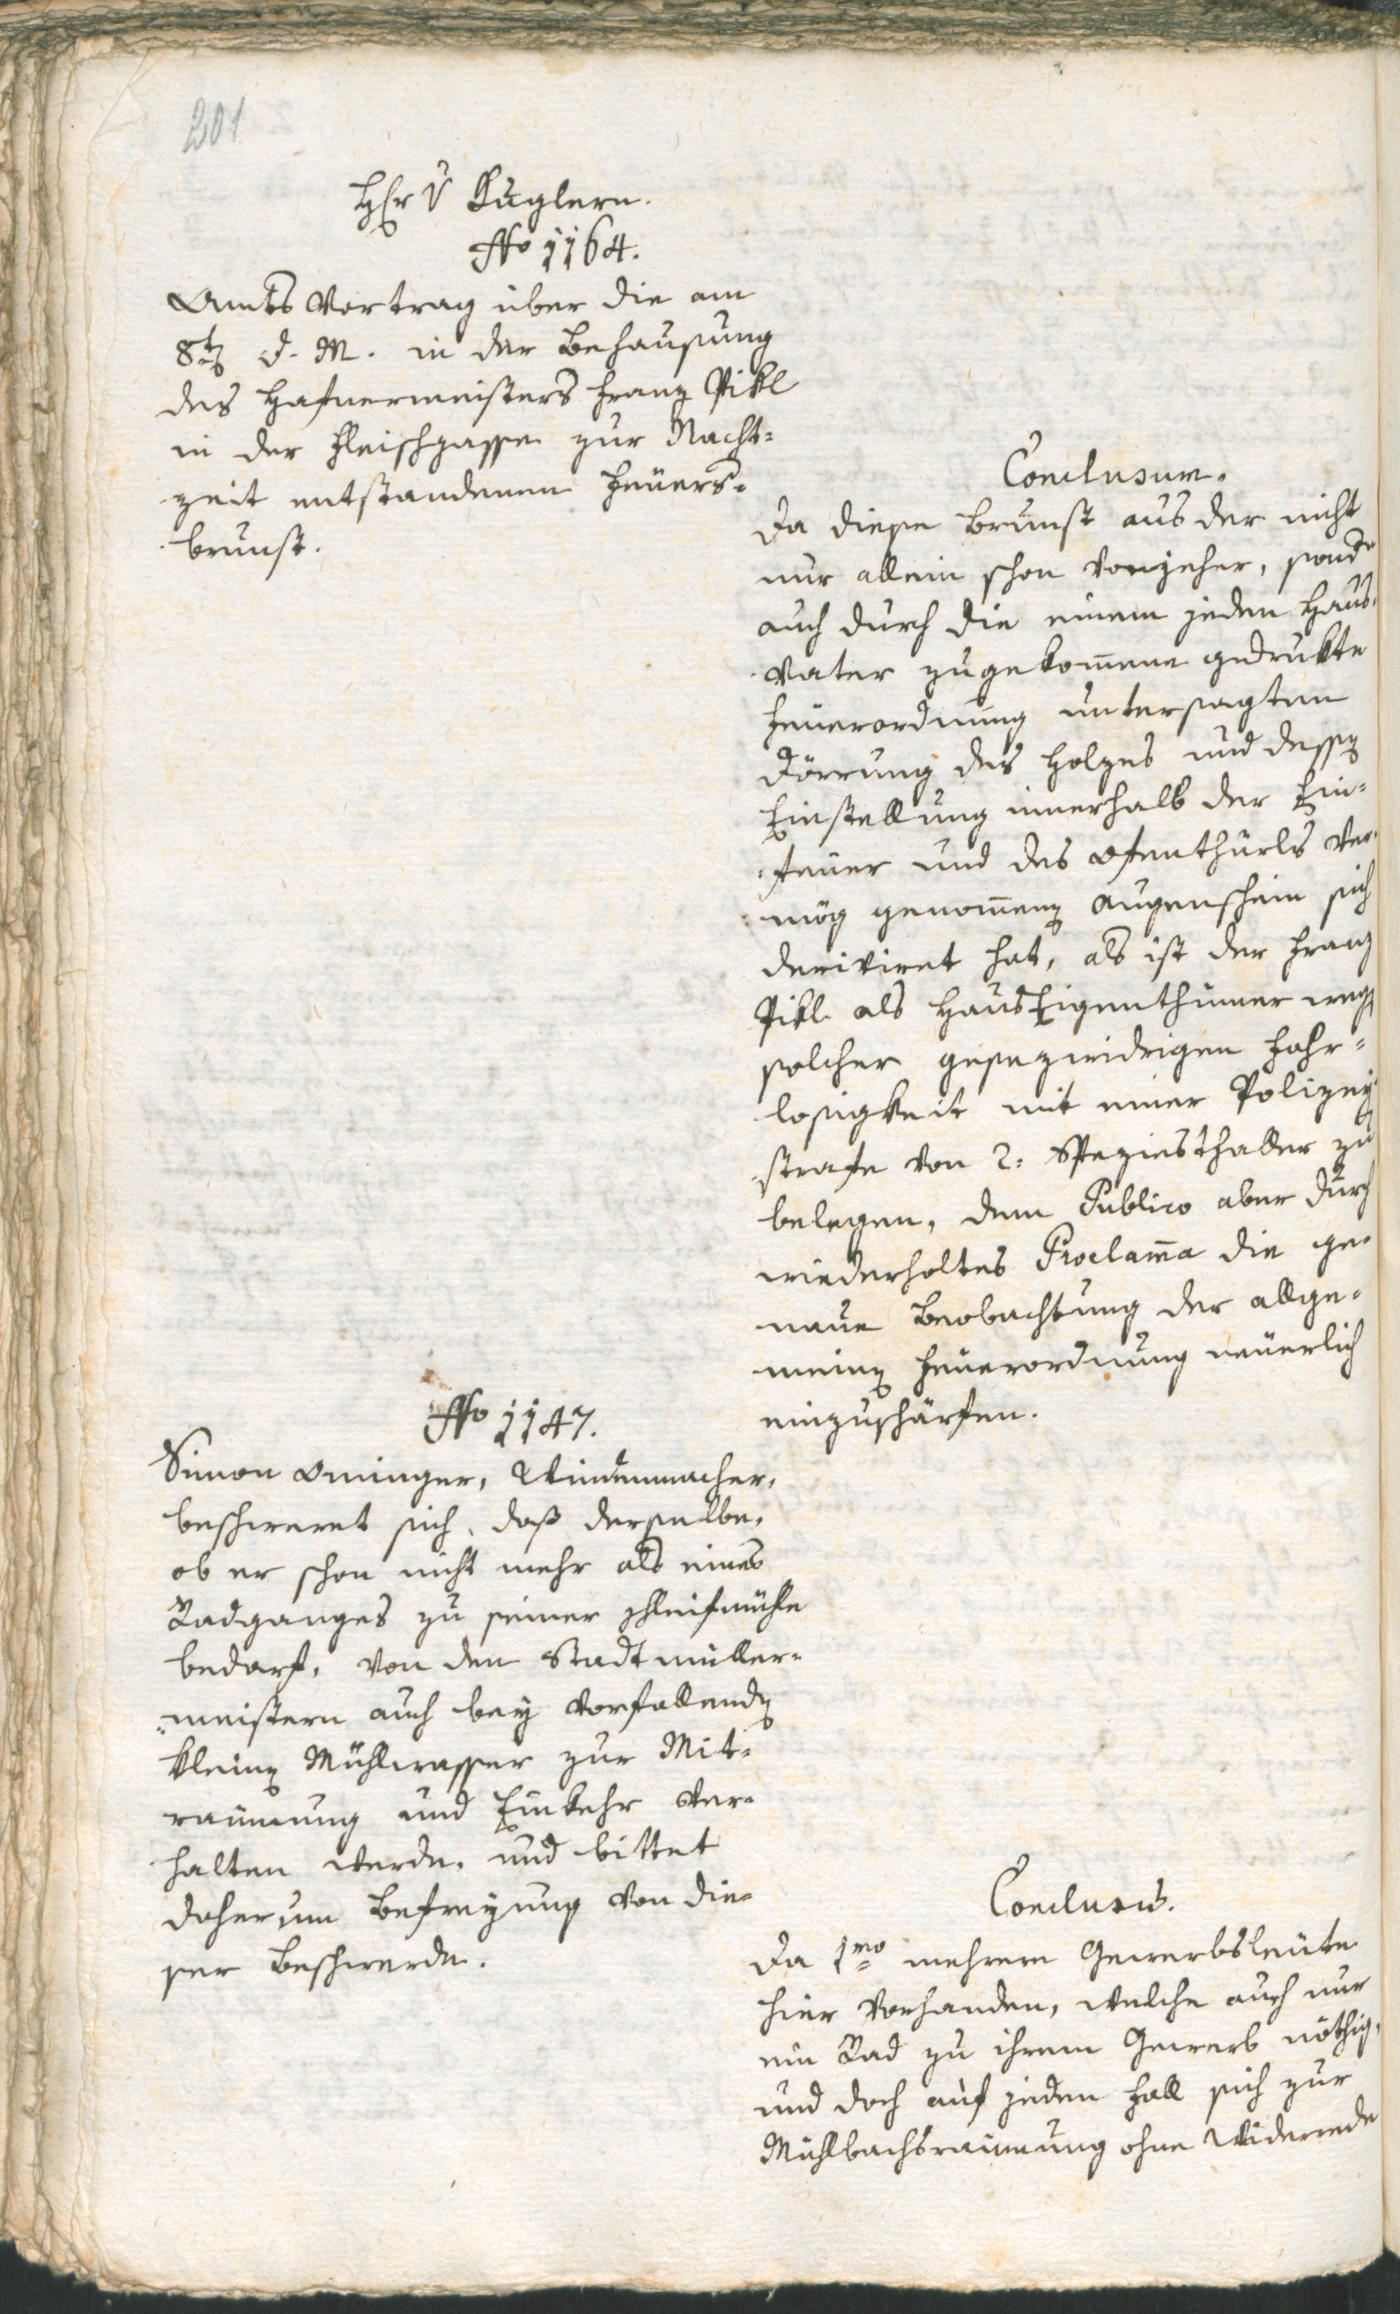 201
Hr v Kuglern.
No 1164.
Amts Vortrag über die am
8t d. M. in der Behausung
des Hafnermeisters Franz Pikl
in der Fleischgasse zur Nacht=
zeit entstandenen Feuers=
brunst.
Conclusum.
Da diese Brunst aus der nicht
nur allein schon vonjeher, sond
auch durch die einem jeden Haus=
vater zugekom̄ene gedrukte
Feuerordnung untersagten
Dörrung des Holzes und dessen
Einstellung innerhalb der Ein=
feuer und des Ofenthürls ver=
mög genom̄en Augenschein sich
deriviret hat, als ist der Franz
Pikl als Haus Eigenthümer wegen
solcher gesezwidrigen Fahr=
losigkeit mit einer Polizey
strafe von 2. Speziesthaller zu
belegen, dem Publico aber durch
wiederholtes Proclam̄a die ge=
naue Beobachtung der allge=
meinen Feuerordnung neuerlich
einzuschärfen.
No 1147.
Simon Ominger, Windenmacher,
beschweret sich, daß derselbe,
ob er schon nicht mehr als eines
Radganges zu seiner Schleifmühle
bedarf, von den Stadtmüller=
meistern auch bey vorfallenden
kleinen Mühlwasser zur Mit=
raumung und Einkehr ver=
halten werde, und bittet
daher um Befreyung von die=
ser Beschwerde.
Conclusum.
Da 1mo mehrere Gewerbsleute
hier vorhanden, welche auch nur
ein Rad zu ihrem Gewerb nöthig,
und doch auf jeden Fall sich zur
Mühlbachsraumung ohne Widerrede